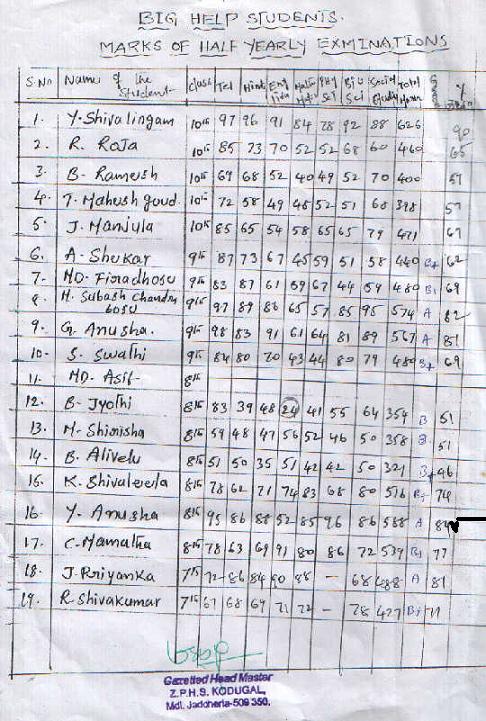 BIG HELP STUDENTS.
MARKS OF HALF YEARLY EXMINATIONS
S.No Name of the Student class Tel Hindi English Maths Phy Sci Bio Sci Social Study Total Marks %
1. Y. Shivalingam 10th 97 96 91 84 78 92 88 626 90
2. R. Roja 10th 85 73 70 52 52 68 60 460 65
3. B. Ramesh 10th 69 68 52 40 49 52 70 400 57
4. T. Mahesh goud 10th 72 58 49 48 52 51 68 398 57
5. J. Manjula 10th 85 65 54 58 65 65 79 471 67
6. A. Shekar 9th 87 73 67 45 59 51 58 440 B+ 62
7. MD. Firadhosu 9th 83 87 61 59 67 44 59 480 B1 69
8. H. Subash chandra bosu 9th 97 89 86 65 57 85 95 574 A 82
9. G. Anusha. 9th 98 83 91 61 64 81 89 567 A 81
10. S. Swathi 9th 84 80 70 43 44 80 79 480 B+ 69
11. MD. Asif 8th
12. B. Jyothi 8th 83 39 48 24 41 55 64 354 B 51
13. M. Shirisha 8th 59 48 47 56 52 46 50 358 B 51
14. B. Alivelu 8th 51 50 35 51 42 42 50 321 B+ 46
15. K. Shivaleela 8th 78 62 71 74 83 68 80 516 B+ 74
16. Y. Anusha 8th 95 86 88 52 85 96 86 588 A 84
17. C. Mamatha 8th 78 63 69 91 80 86 72 539 B1 77
18. J. Priyanka 7th 72 86 84 90 88 - 68 488 A 81
19. R. Shivakumar 7th 67 68 69 71 72 - 78 427 B+ 71
Gazetted Head Master
Z.P.H.S. KODUGAL,
Mdl. Jadcherla-509 350.